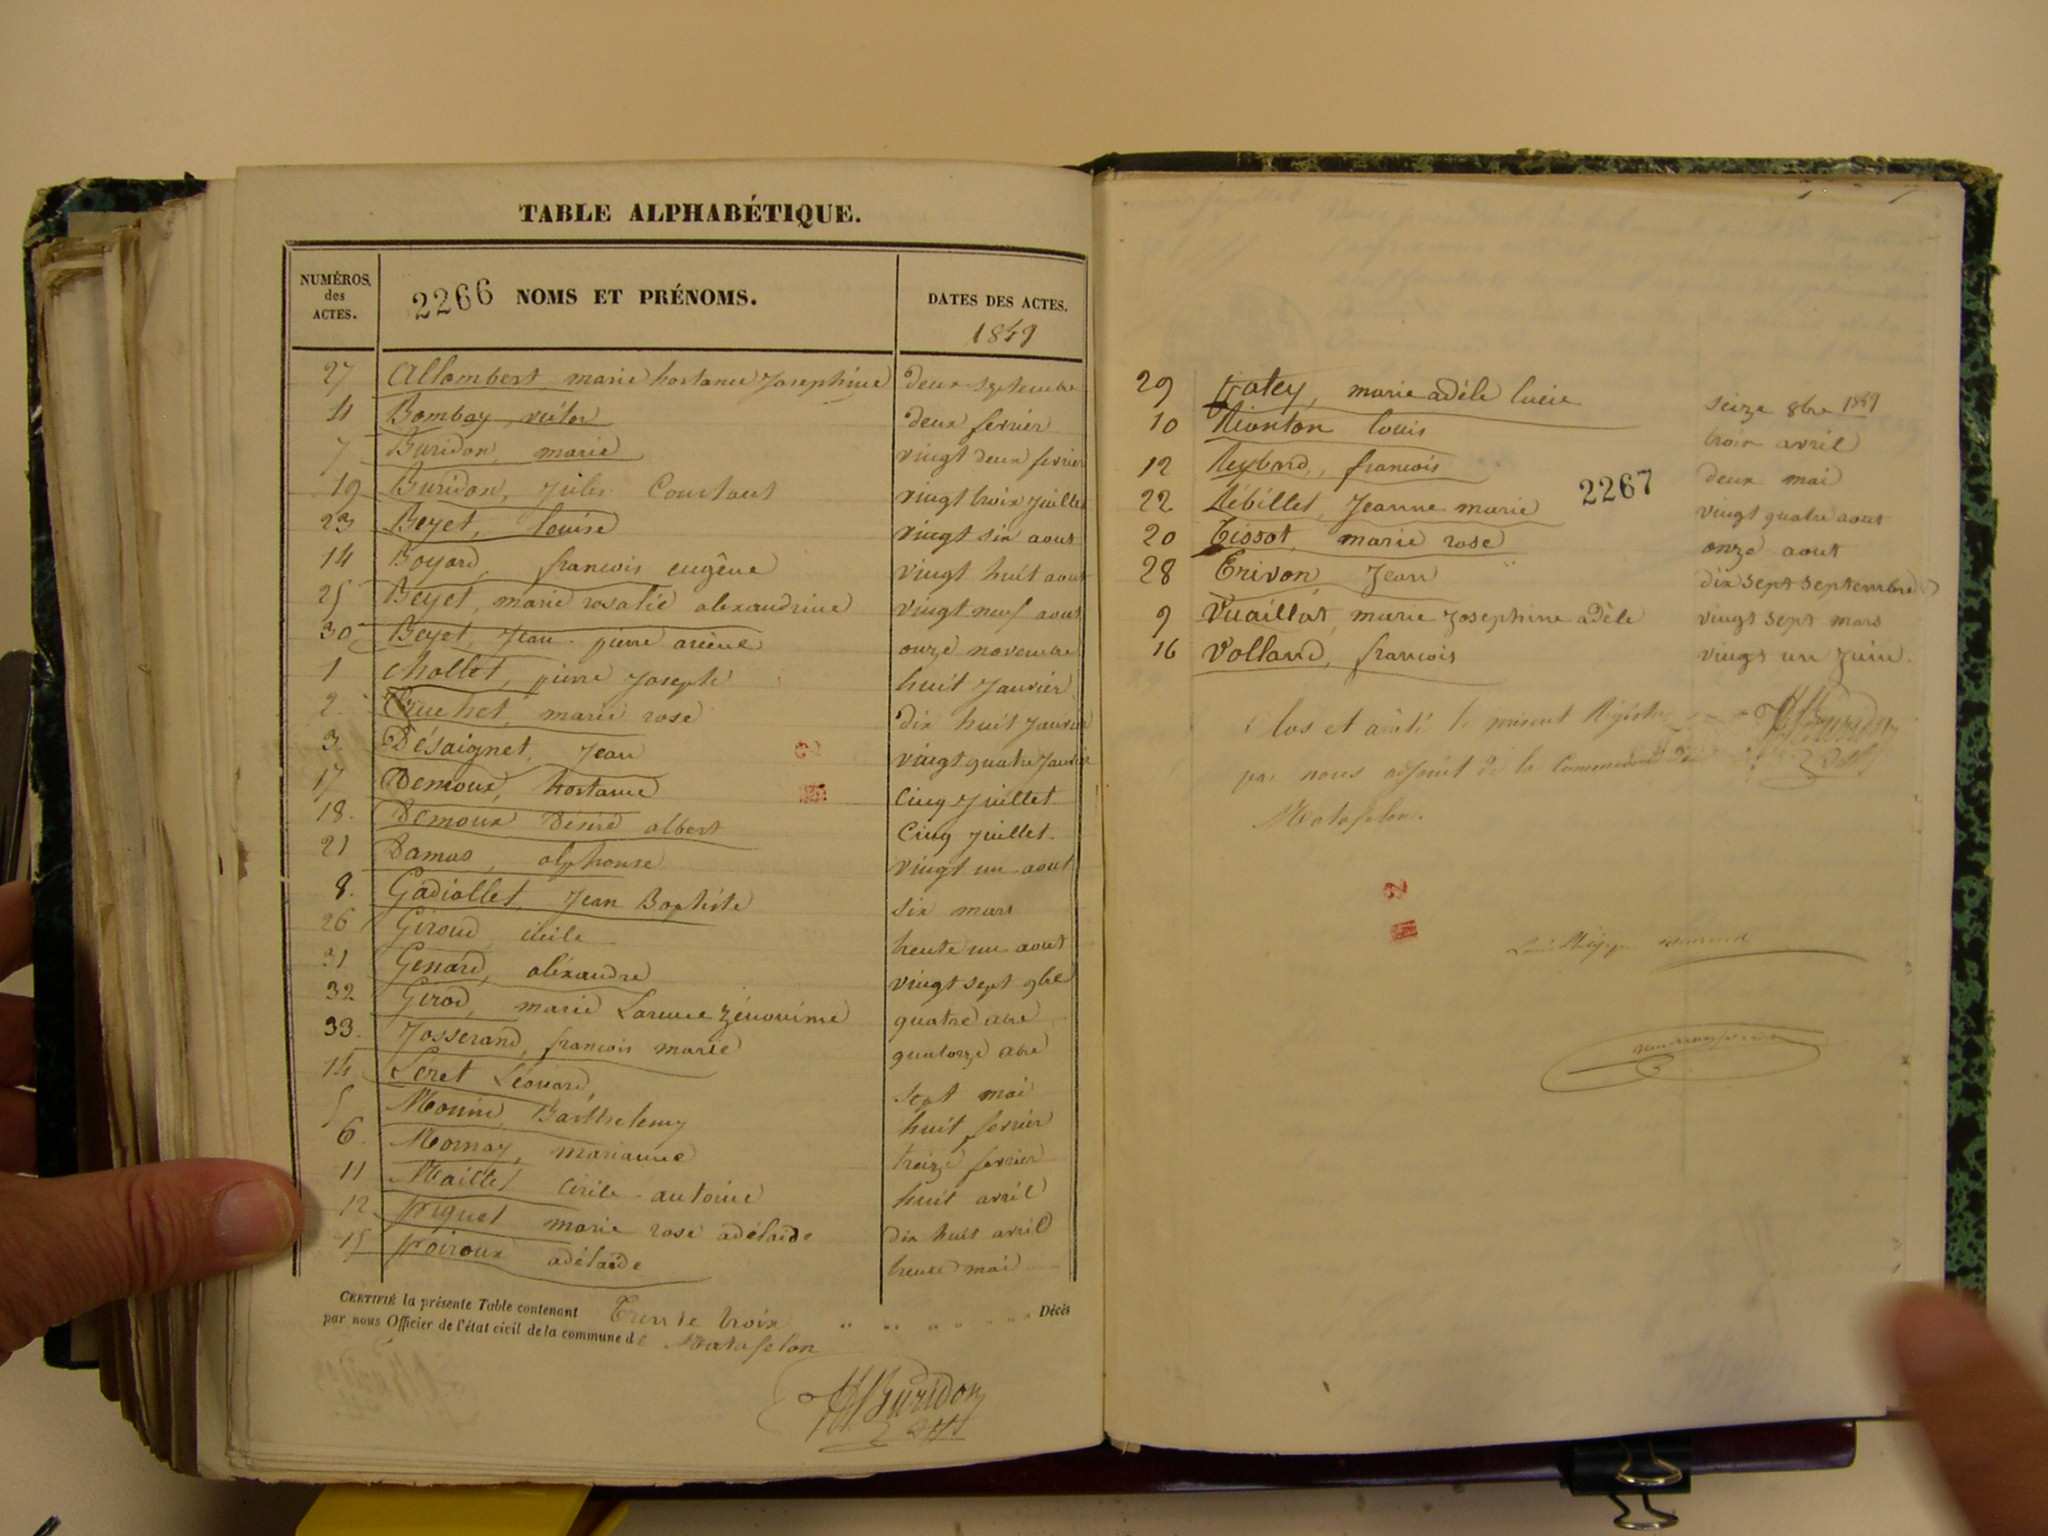 TABLE ALPHABÉTIQUE.
NUMÉROS des ACTES. 2266 NOMS ET PRÉNOMS. DATES DES ACTES. 1849
27 Allombert marie hortance Josephine deux septembre
4 Bombay, victor deux fevrier
7 Buridon, marie vingt deux fevrier
19 Buridon, Jules Constant vingt trois Juillet
23 Beyet, louise vingt six aout
14 Boyard, francois eugêne vingt huit aout
25 Beyet, marie rosalie alexandrine vingt neuf aout
30 Beyet, Jean pierre onze novembre
1 Chollet, pierre Joseph huit Janvier
2 Cruchet, marie rose dix huit Janvier
3 Désaignet, Jean vingt quatre Janvier
17 Demoux, hortance Cinq Juillet
18. Demoux Désiré albert Cinq Juillet
21 Damas, alphonse vingt un aout
8. Gadiollet, Jean Baptiste six mars
26 Giroud, cécile trente un aout
31 Genard, aléxandre vingt sept 9bre
32 Girod, marie quatre xbre
33. Josserand, francois marie quatorze xbre
14 Séret Léonard, sept mai
5 Monin, Barthelemy huit fevrier
6. Mornay, marianne treize fevrier
11 Maillet Cirile antoine huit avril
12 piquet marie rose adélaide dix huit avril
15 poiroux adélaide treize mai
CERTIFIÉ la présente Table contenant Trente trois Décès
par nous Officier de l'état civil de la commune de Matafelon
Buridon
adjt
29 patey, marie adèle lucie seize 8bre 1849
10 Rionton louis trois avril
12 Reybard, francois deux mai
22 Rébillet, Jeanne marie 2267 vingt quatre aout
20 Tissot, marie rose onze aout
28 Trivon, Jean dix sept septembre
9 Vuaillat, marie Josephine adèle vingt sept mars
16 Volland, francois vingt un Juin.
Clos et arêté le présent Régistre
par nous adjoint de la Commune de
Matafelon.
Buridon
adjt